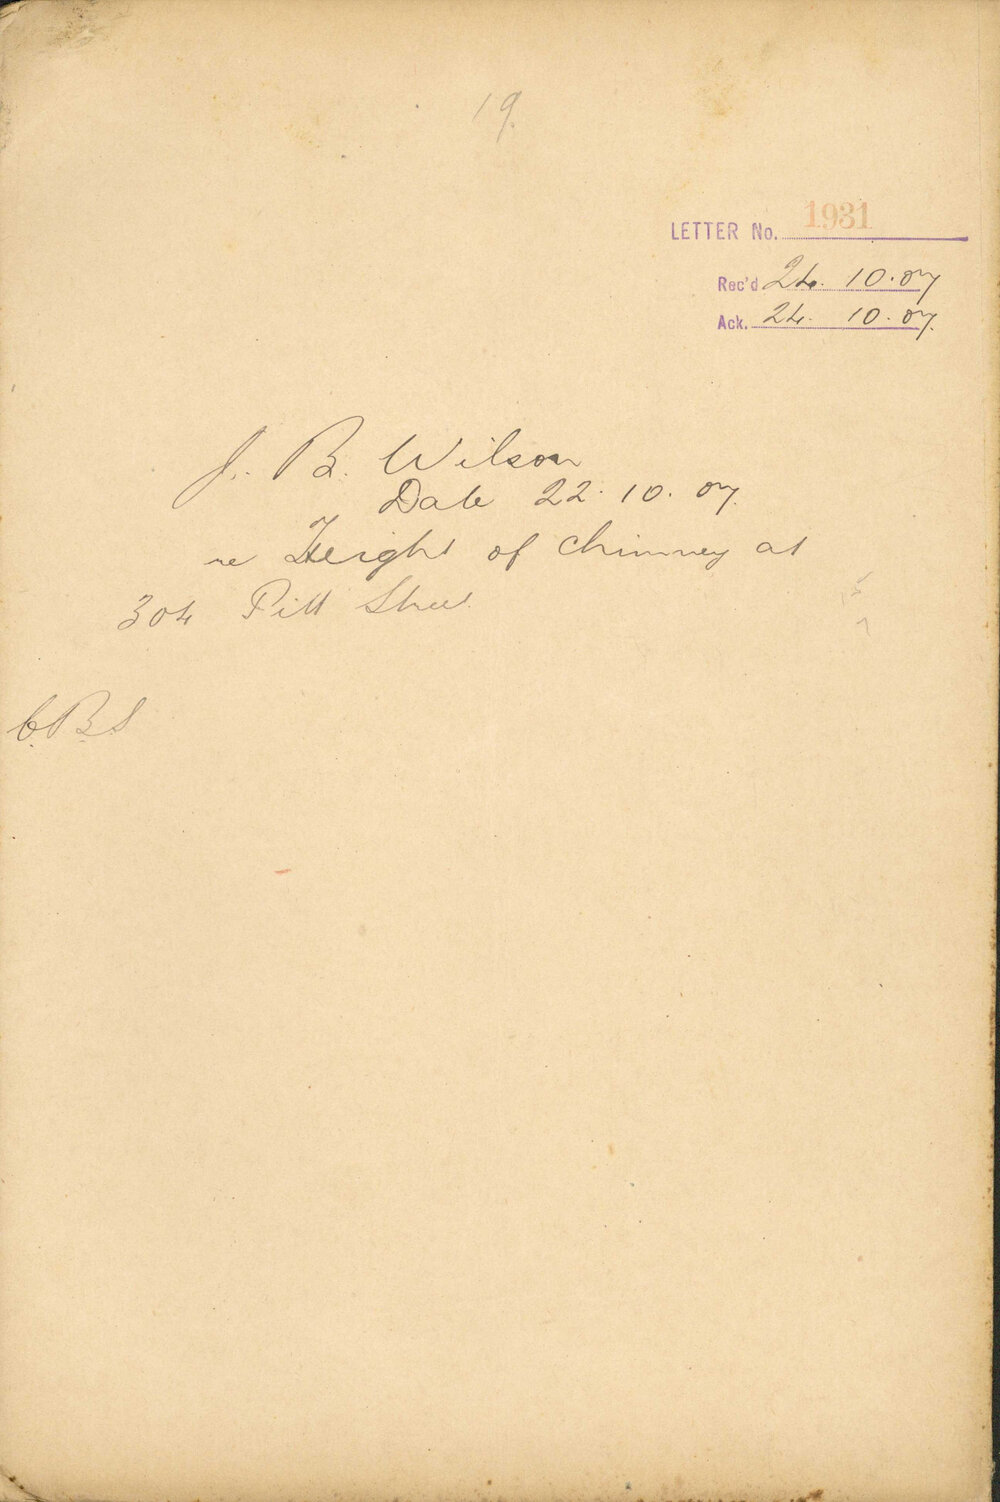 19.
LETTER No. 1931
Rec'd 24. 10. 07
Ack. 24. 10. 07.
J. B. Wilson
Date 22. 10. 07.
re Height of Chimney at
304 Pitt Street.
C.B.S